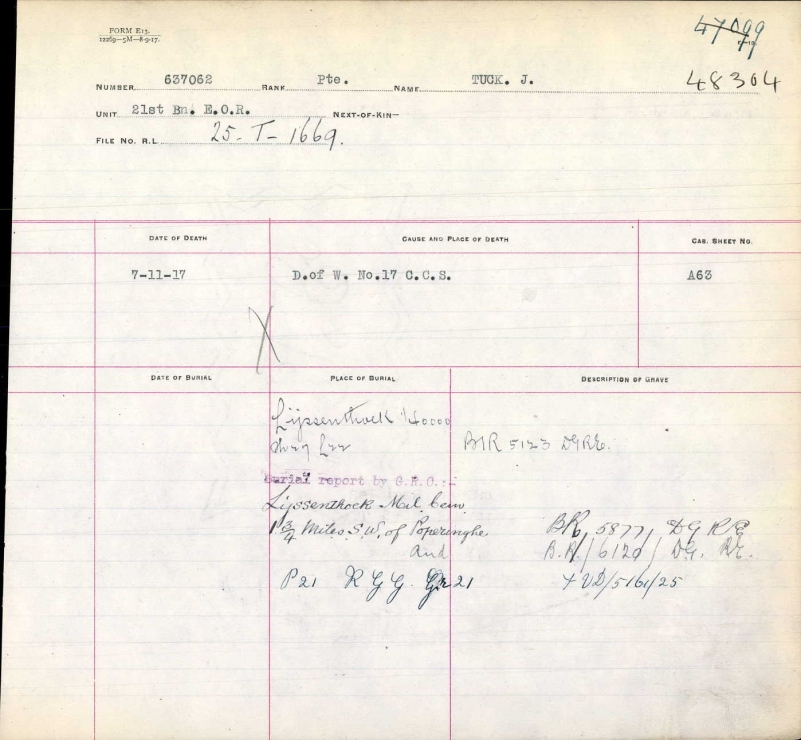 FORM E13.
12269—5M—8-9-17.
47099
48304
NUMBER 637062 RANK Pte. NAME TUCK. J.
UNIT 21st Bn. E.O.R. NEXT-OF-KIN—
FILE NO. R.L. 25-T-1669.
DATE OF DEATH CAUSE AND PLACE OF DEATH CAS. SHEET NO.
7-11-17 D.of W. No.17 C.C.S. A63
X
DATE OF BURIAL PLACE OF BURIAL DESCRIPTION OF GRAVE
Lijssenthoek 1/40000
BIR 5123 DGRE.
Burial report by G.R.C.:-
Lijssenthock Mil. Cem.
1 3/4 Miles S.W. of Poperinghe BR, 5877, DGRE
And B.R./6120/ DG. RE.
P21 R GG. Gr 21 + VD/5161/25